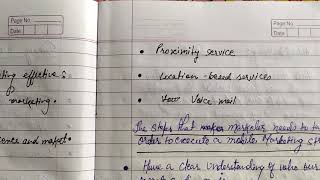 Page No
Date
ting effective &
marketing.
ance and market
Page No
Date
• Proximity service
• Location-based services
• Voice mail
The steps that marketer needs to ta
order to execute a mobile marketing
• Have a clear understanding of who our